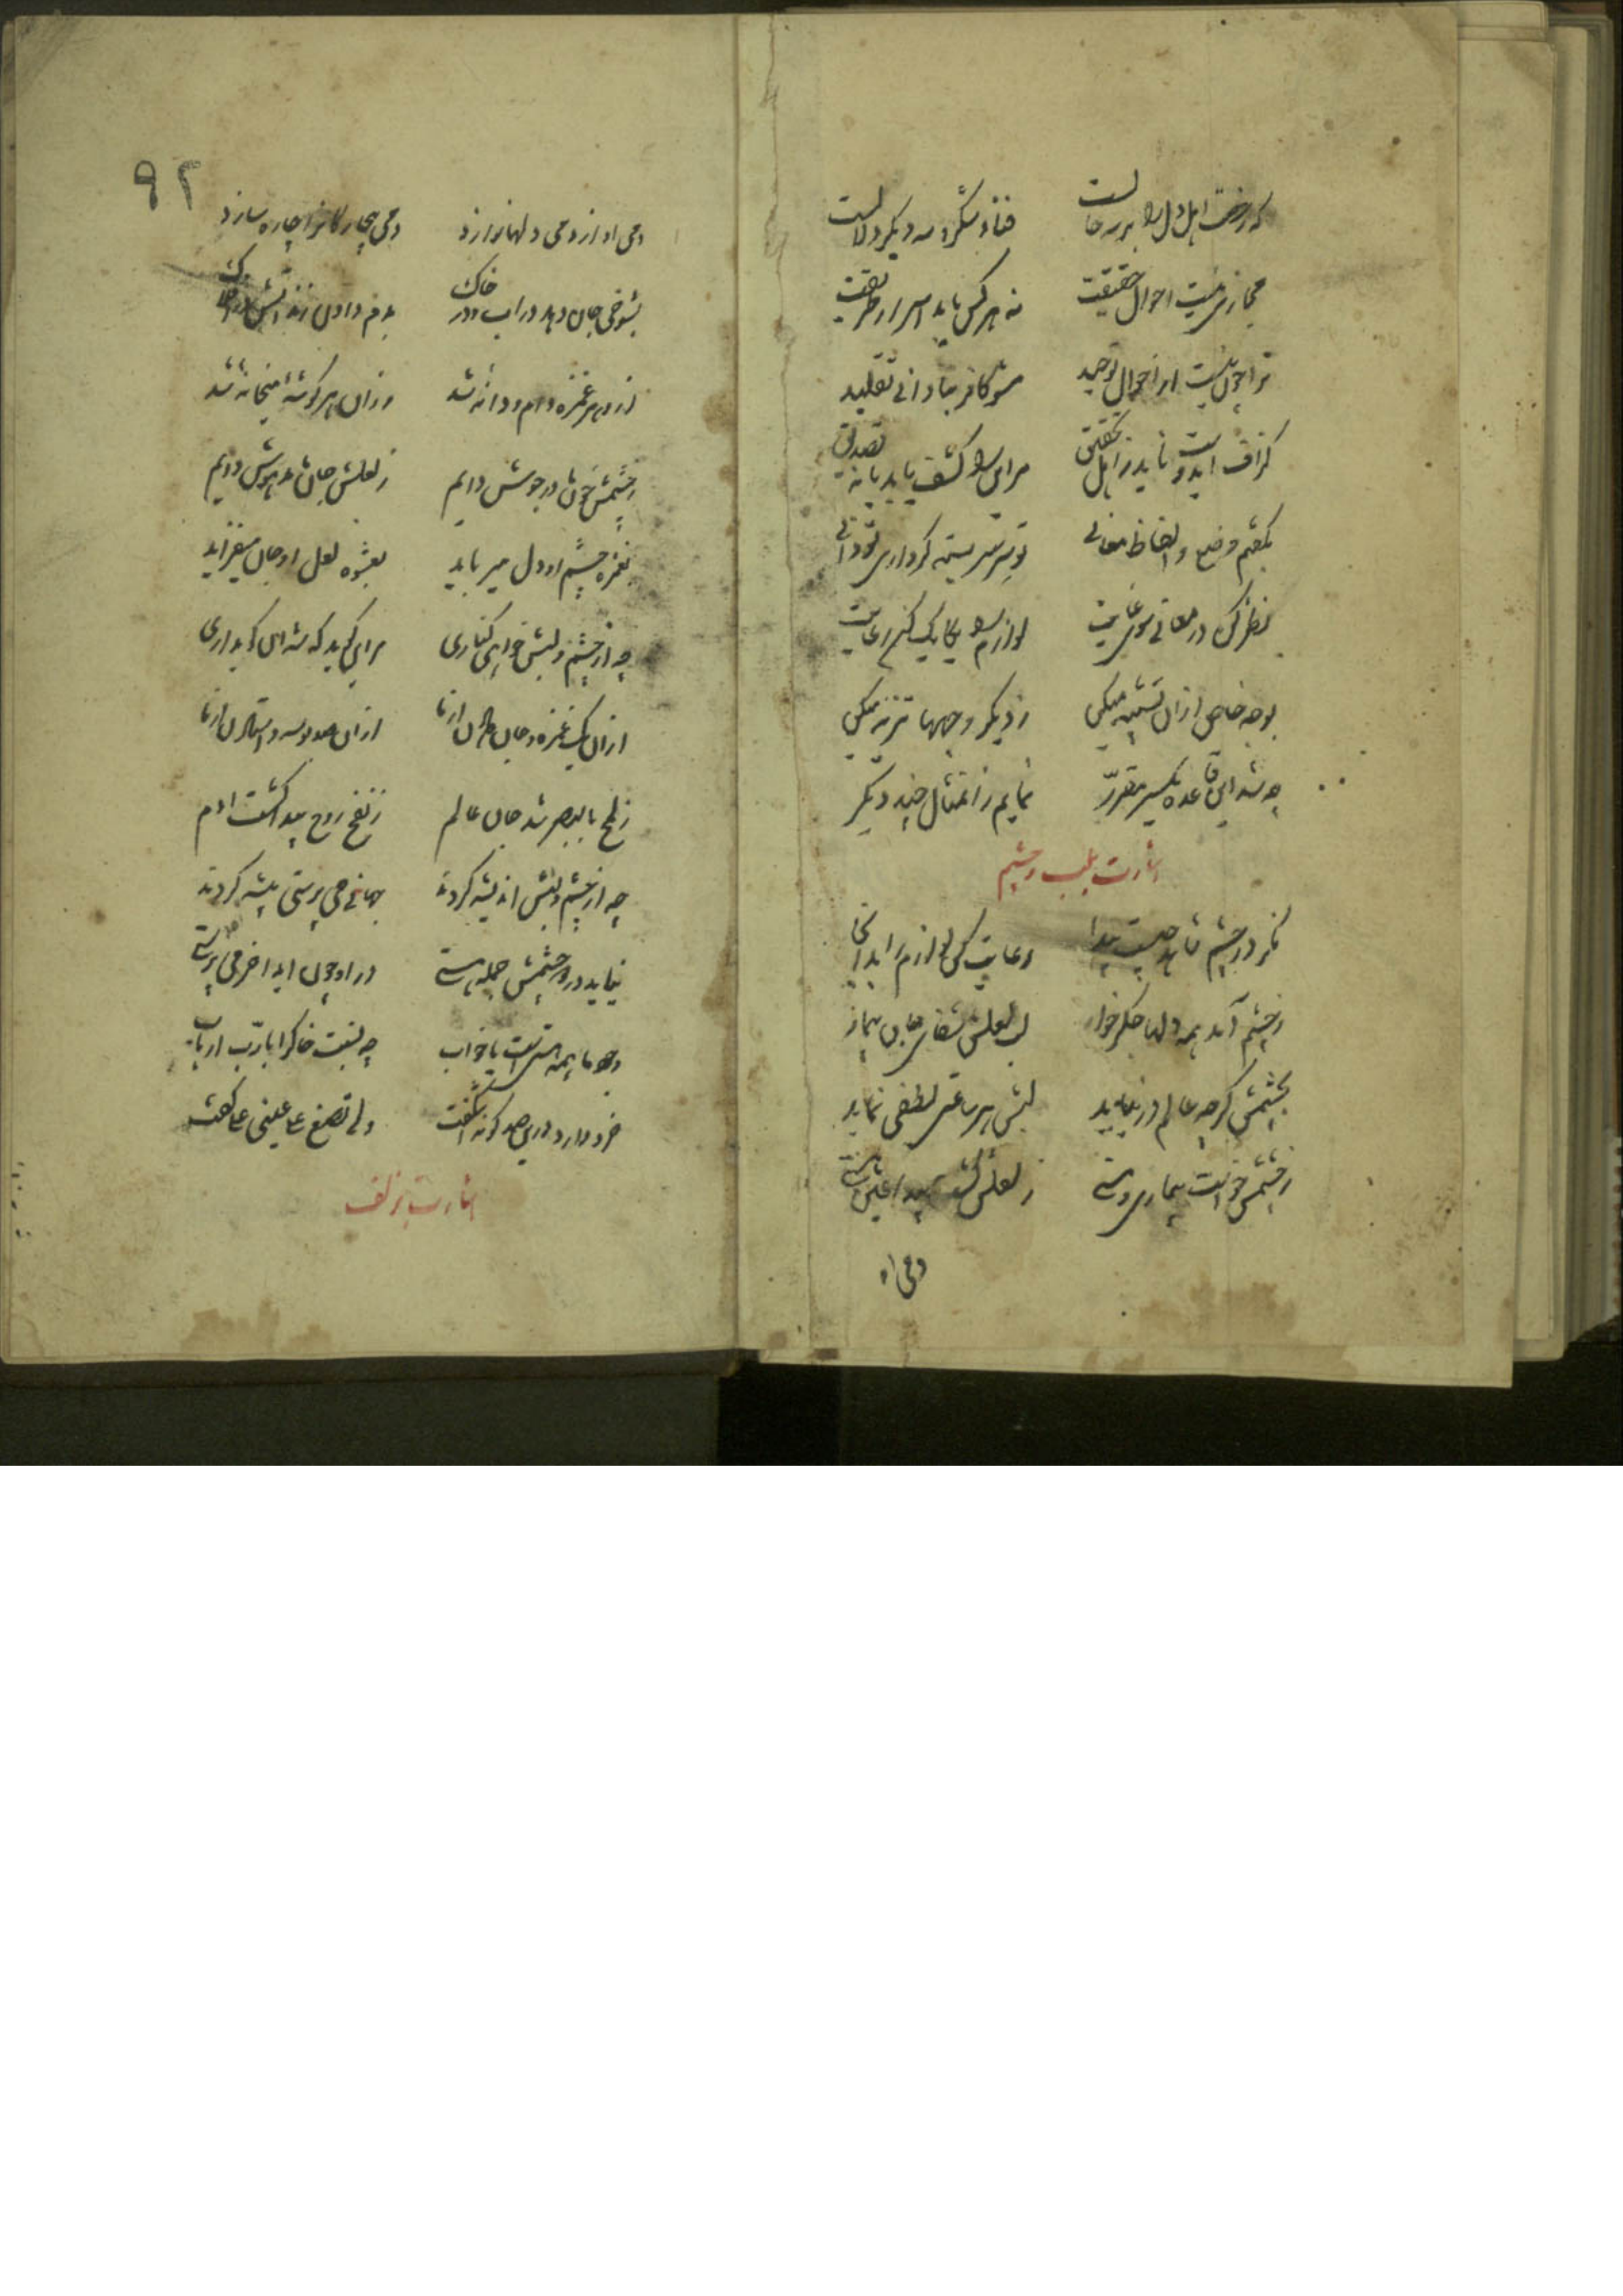 که رخصت اهل دل را در سه حالست فنا و سکر و سه دیگر دلالست
مجازی نیست احوال حقیقت نه هر کس یابد اسرار طریقت
ترا چون نیست احوال مواجید مشو کافر بنادانی تقلید
گزاف ای دوست ناید ز اهل تحقیق مر این را کشف باید یا نه تصدیق
بگفتم وضع و الفاظ معانی تو سربسته گر داری تو دانی
نظر کن در معانی سوی غایت لوازم را یکایک کن رعایت
بوجه خاص ازان تشبیه میکن ز دیگر وجهها تنزیه میکن
چو شد این قاعده یکسر مقرر نمایم زان مثال چند دیگر
اشارت بلب و چشم
نگر در چشم شاهد چیست پیدا رعایت کن لوازم را بدانجا
ز چشم آمد همه دلها جگرخوار لب لعلش شفای جان بیمار
بچشمش گرچه عالم در نیاید لبش هر ساعتی لطفی نماید
ز چشمش خواست بیماری و مستی ز لعلش گشت پیدا عین هستی
دمی از
۹۲
دمی از مردمی دلها نوازد دمی بیچارگانرا چاره سازد
بشوخی جان دهد در آب و در خاک بدم دادن زند آتش در افلاک
ازو هر غمزه دام و دانه شد وزان هر گوشهٔ میخانه شد
ز چشمش خون ما در جوش دایم ز لعلش جان ما مدهوش دایم
بغمزه چشم او دل میرباید بعشوه لعل او جان میفزاید
چو از چشم و لبش خواهی کناری مر این گوید که نه آن گوید آری
ازان یک غمزه و جان دادن از ما ازان یک بوسه و استادن از ما
ز لمح بالبصر شد جان عالم ز نفخ روح پیدا گشت آدم
چو از چشم و لبش اندیشه کردند جهانی می پرستی پیشه کردند
نیاید در دو چشمش جمله هستی در او چون آید آخر می پرستی
وجود ما همه مستی است یا خواب چه نسبت خاک را با رب ارباب
خرد دارد درین صد گونه اشگفت ولتصنع علی عینی چرا گفت
اشارت بزلف